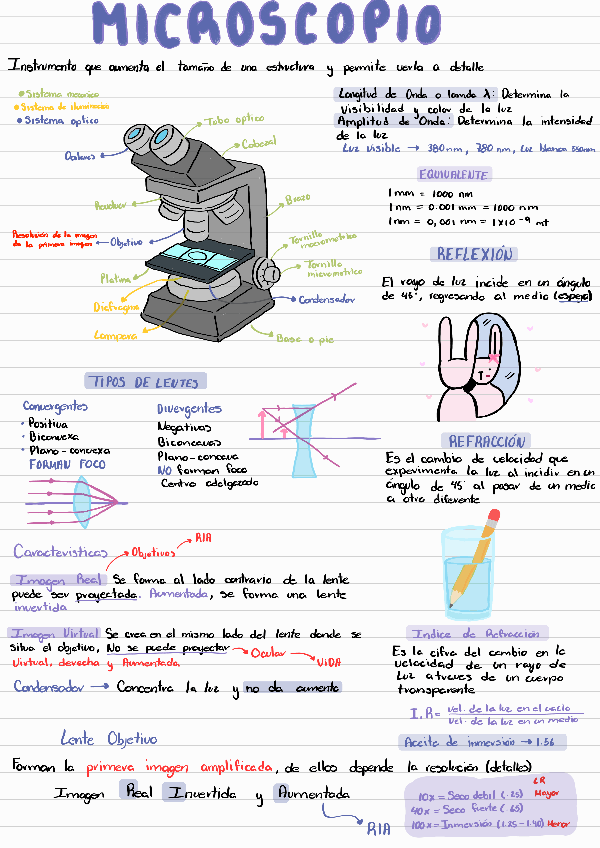 MICROSCOPIO
Instrumento que aumenta el tamaño de una estructura y permite verla a detalle
• Sistema mecanico
• Sistema de iluminacion
• Sistema optico
Oculares
Tubo optico
Cabezal
Revolver
Brazo
Resolucion de la imagen
de la primera imagen
Objetivo
Tornillo
macrometrico
Tornillo
micrometrico
Platina
Diafragma
Condensador
Lampara
Base o pie
Longitud de Onda o lamda λ: Determina la
visibilidad y color de la luz
Amplitud de Onda: Determina la intensidad
de la luz
Luz visible → 380nm, 780 nm, Luz blanca 550nm
EQUIVALENTE
1 mm = 1000 nm
1 nm = 0.001 mm = 1000 nm
1 nm = 0,001 nm = 1x10⁻⁹ mt
REFLEXIÓN
El rayo de luz incide en un ángulo
de 45°, regresando al medio (espejo)
TIPOS DE LENTES
Convergentes
• Positiva
• Biconvexa
• Plano-convexa
FORMAN FOCO
Divergentes
Negativas
Biconcavas
Plano-concava
NO forman foco
Centro adelgazado
REFRACCIÓN
Es el cambio de velocidad que
experimenta la luz al incidir en un
ángulo de 45° al pasar de un medio
a otro diferente
Caracteristicas → Objetivos → RIA
Imagen Real Se forma al lado contrario de la lente
puede ser proyectada. Aumentada, se forma una lente
invertida
Imagen Virtual Se crea en el mismo lado del lente donde se
situa el objetivo, No se puede proyectar → Ocular → VIDA
Virtual, derecha y Aumentada.
Condensador → Concentra la luz y no da aumento
Indice de Refracción
Es la cifra del cambio en la
velocidad de un rayo de
luz atraves de un cuerpo
transparente
I.R= vel. de la luz en el vacio
vel. de la luz en un medio
Aceite de inmersión → 1.56
Lente Objetivo
Forman la primera imagen amplificada, de ellos depende la resolución (detalles)
Imagen Real Invertida y Aumentada
RIA
LR
10x = Seco debil (.25) Mayor
40x = Seco fuerte (.65)
100x = Inmersión (1.25 - 1.40) Menor